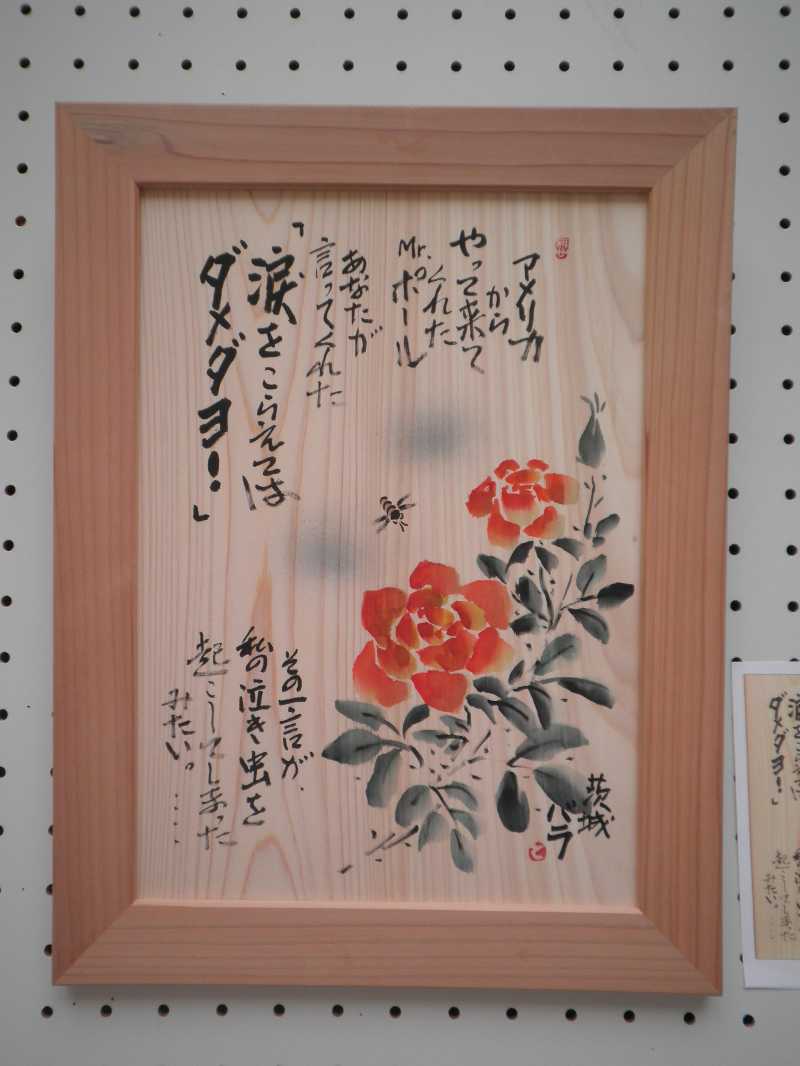 アメリカ
から
やって来て
くれた
Mr.ポール
あなたが
言ってくれた
「涙をこらえては
ダメダヨ!」
その一言が、
私の泣き虫を
起こしてしまった
みたい。……
茨城
バラ
涙をこらえては
ダメダヨ!」
起こしてしまった
みたい。……